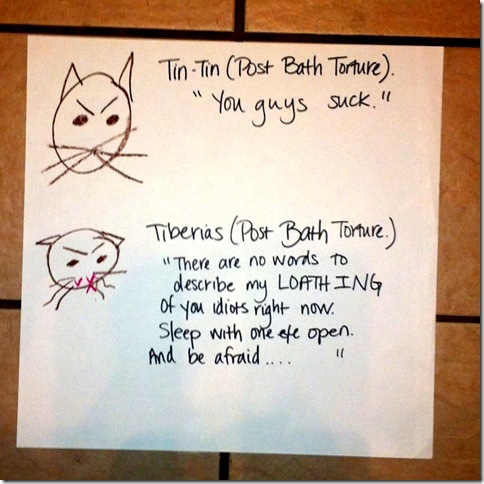 Tin-Tin (Post Bath Torture).
"You guys suck."
Tiberias (Post Bath Torture.)
"There are no words to
describe my LOATHING
of you idiots right now.
Sleep with one eye open.
And be afraid .... "